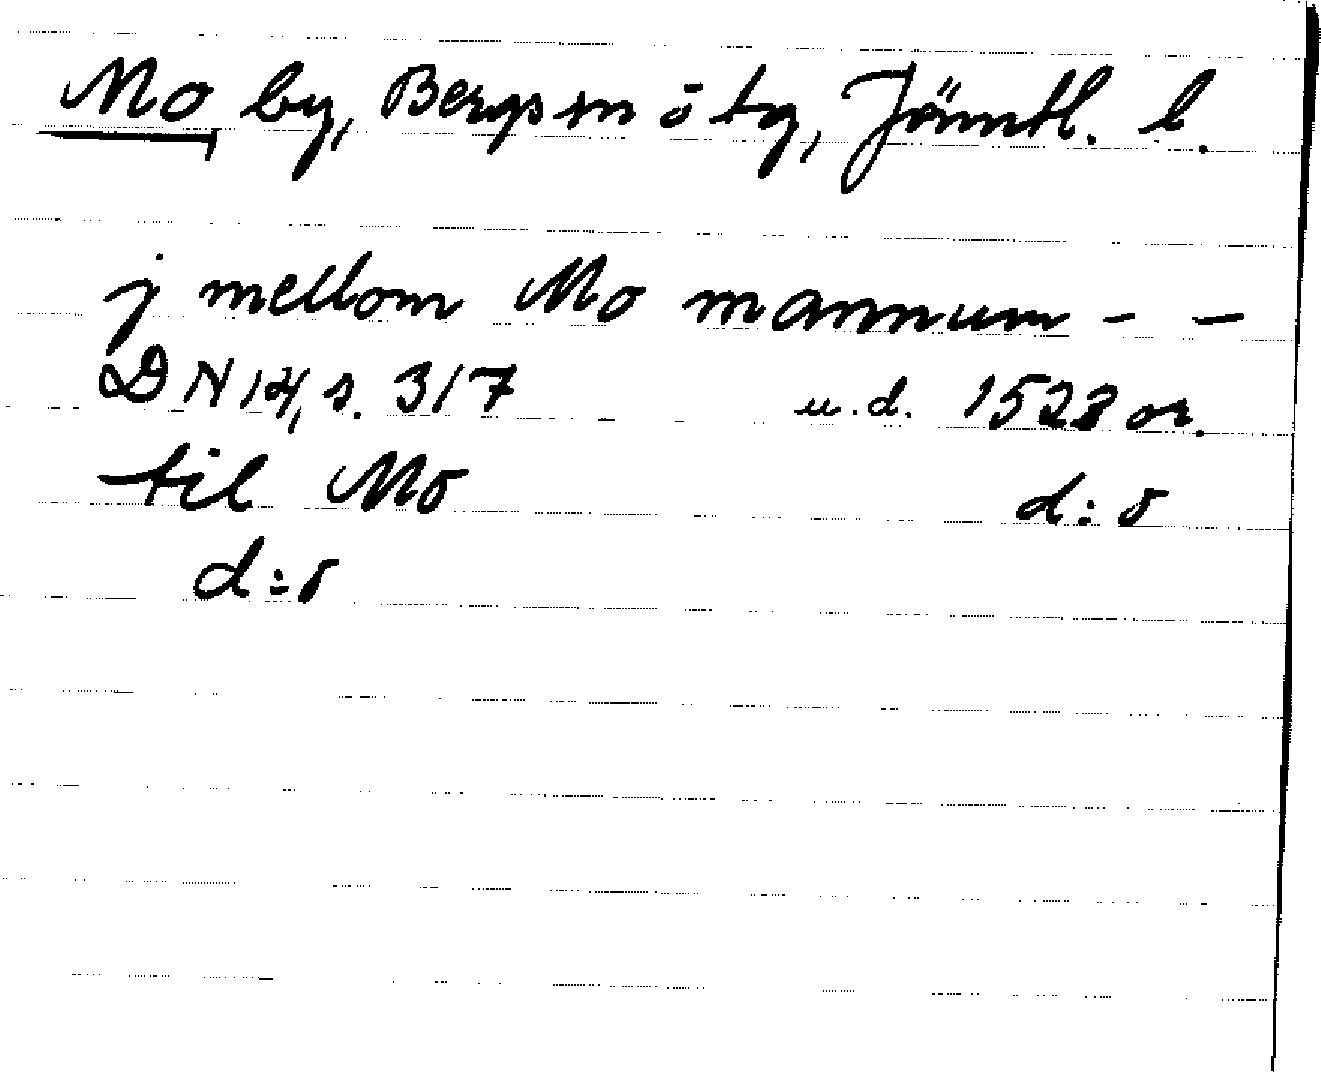 Mo by, Bergs sn ö tg, Jämtl. l.
j mellom Mo mannum - -
DN 14, s. 317 u.d. 1528 or.
til Mo d:o
d:o